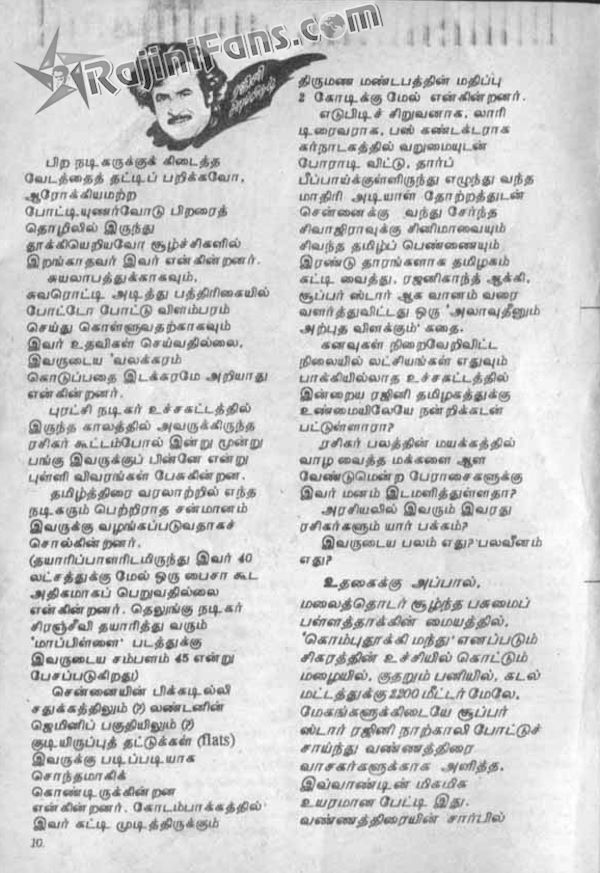 RajiniFans.com
ரஜினி
பிற நடிகருக்குக் கிடைத்த
வேடத்தைத் தட்டிப் பறிக்கவோ,
ஆரோக்கியமற்ற
போட்டியுணர்வோடு பிறரைத்
தொழிலில் இருந்து
தூக்கியெறியவோ சூழ்ச்சிகளில்
இறங்காதவர் இவர் என்கின்றனர்.
சுயலாபத்துக்காகவும்,
சுவரொட்டி அடித்து பத்திரிகையில்
போட்டோ போட்டு விளம்பரம்
செய்து கொள்ளுவதற்காகவும்
இவர் உதவிகள் செய்வதில்லை,
இவருடைய 'வலக்கரம்
கொடுப்பதை இடக்கரமே அறியாது
என்கின்றனர்.
புரட்சி நடிகர் உச்சகட்டத்தில்
இருந்த காலத்தில் அவருக்கிருந்த
ரசிகர் கூட்டம்போல் இன்று மூன்று
பங்கு இவருக்குப் பின்னே என்று
புள்ளி விவரங்கள் பேசுகின்றன.
தமிழ்த்திரை வரலாற்றில் எந்த
நடிகரும் பெற்றிராத சன்மானம்
இவருக்கு வழங்கப்படுவதாகச்
சொல்கின்றனர்.
(தயாரிப்பாளரிடமிருந்து இவர் 40
லட்சத்துக்கு மேல் ஒரு பைசா கூட
அதிகமாகப் பெறுவதில்லை
என்கின்றனர். தெலுங்கு நடிகர்
சிரஞ்சீவி தயாரித்து வரும்
'மாப்பிள்ளை' படத்துக்கு
இவருடைய சம்பளம் 45 என்று
பேசப்படுகிறது)
சென்னையின் பிக்கடில்லி
சதுக்கத்திலும் (?) லண்டனின்
ஜெமினிப் பகுதியிலும் (?)
குடியிருப்புத் தட்டுக்கள் (flats)
இவருக்கு படிப்படியாக
சொந்தமாகிக்
கொண்டிருக்கின்றன
என்கின்றனர். கோடம்பாக்கத்தில்
இவர் கட்டி முடித்திருக்கும்
10.
திருமண மண்டபத்தின் மதிப்பு
2 கோடிக்கு மேல் என்கின்றனர்.
எடுபிடிச் சிறுவனாக, லாரி
டிரைவராக, பஸ் கண்டக்டராக
கர்நாடகத்தில் வறுமையுடன்
போராடி விட்டு, தார்ப்
பீப்பாய்க்குள்ளிருந்து எழுந்து வந்த
மாதிரி அடியாள் தோற்றத்துடன்
சென்னைக்கு வந்து சேர்ந்த
சிவாஜிராவுக்கு சினிமாவையும்
சிவந்த தமிழ்ப் பெண்ணையும்
இரண்டு தாரங்களாக தமிழகம்
கட்டி வைத்து, ரஜனிகாந்த் ஆக்கி,
சூப்பர் ஸ்டார் ஆக வானம் வரை
வளர்த்துவிட்டது ஒரு 'அலாவுதீனும்
அற்புத விளக்கும்' கதை.
கனவுகள் நிறைவேறிவிட்ட
நிலையில் லட்சியங்கள் எதுவும்
பாக்கியில்லாத உச்சகட்டத்தில்
இன்றைய ரஜினி தமிழகத்துக்கு
உண்மையிலேயே நன்றிக்கடன்
பட்டுள்ளாரா?
ரசிகர் பலத்தின் மயக்கத்தில்
வாழ வைத்த மக்களை ஆள
வேண்டுமென்ற பேராசைகளுக்கு
இவர் மனம் இடமளித்துள்ளதா?
அரசியலில் இவரும் இவரது
ரசிகர்களும் யார் பக்கம்?
இவருடைய பலம் எது? பலவீனம்
எது?
உதகைக்கு அப்பால்,
மலைத்தொடர் சூழ்ந்த பசுமைப்
பள்ளத்தாக்கின் மையத்தில்,
'கொம்புதூக்கி மந்து' எனப்படும்
சிகரத்தின் உச்சியில் கொட்டும்
மழையில், குதறும் பனியில், கடல்
மட்டத்துக்கு 2200 மீட்டர் மேலே,
மேகங்களுக்கிடையே சூப்பர்
ஸ்டார் ரஜினி நாற்காலி போட்டுச்
சாய்ந்து வண்ணத்திரை
வாசகர்களுக்காக அளித்த,
இவ்வாண்டின் மிகமிக
உயரமான பேட்டி இது.
வண்ணத்திரையின் சார்பில்